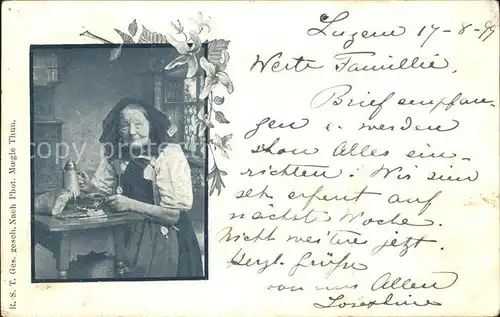 R. S. T. Ges. gesch. Nach Phot. Mœgle Thun.
Luzern 17-8-99
Werte Famillie,
Brief empfan
gen u. werden
schon Alles ein-
richten. Wir sind
sehr erfreut auf
nächste Woche.
Nicht weiter jetzt.
Herzl. Grüße
von uns Allen
Josephine